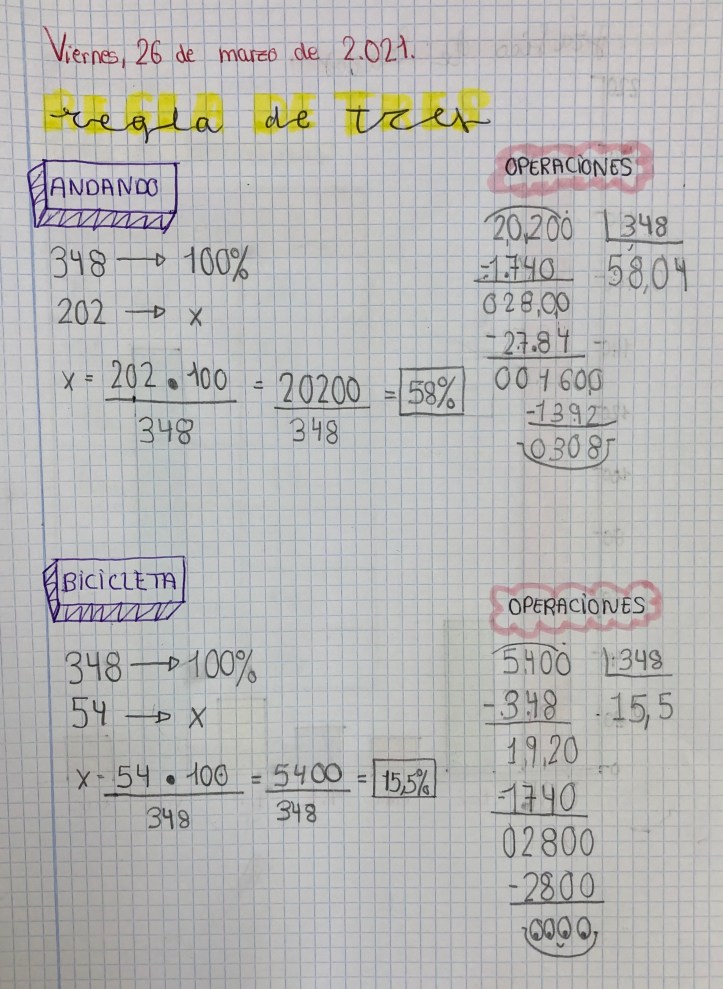 Viernes, 26 de marzo de 2.021.
regla de tres
ANDANDO
348 → 100%
202 → x
x = 202 . 100 / 348 = 20200 / 348 = 58%
OPERACIONES
20,200 348
-1.740 58,04
028,00
-27.84
001600
-1392
0308
BICICLETA
348 → 100%
54 → x
x = 54 . 100 / 348 = 5400 / 348 = 15,5%
OPERACIONES
5400 348
-348 15,5
19,20
-1740
02800
-2800
0000